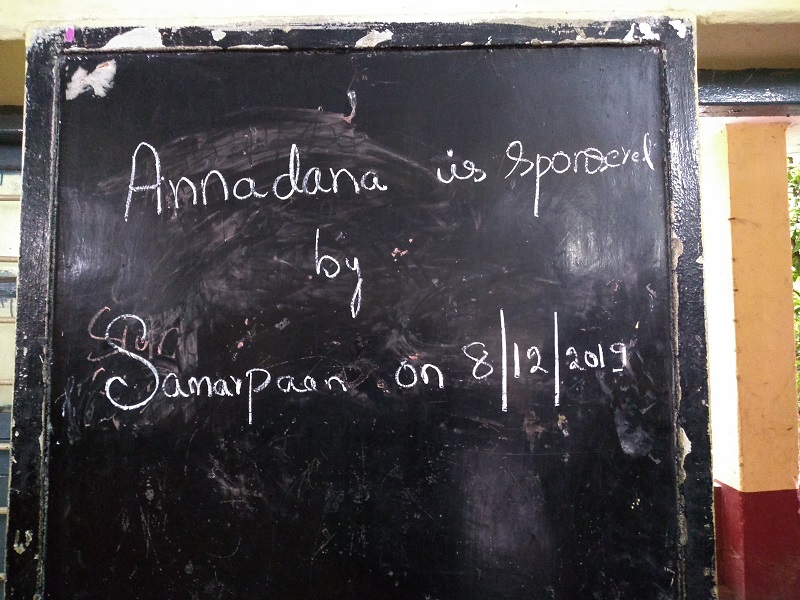 Annadana is Sponsered
by
Samarpaan on 8/12/2019